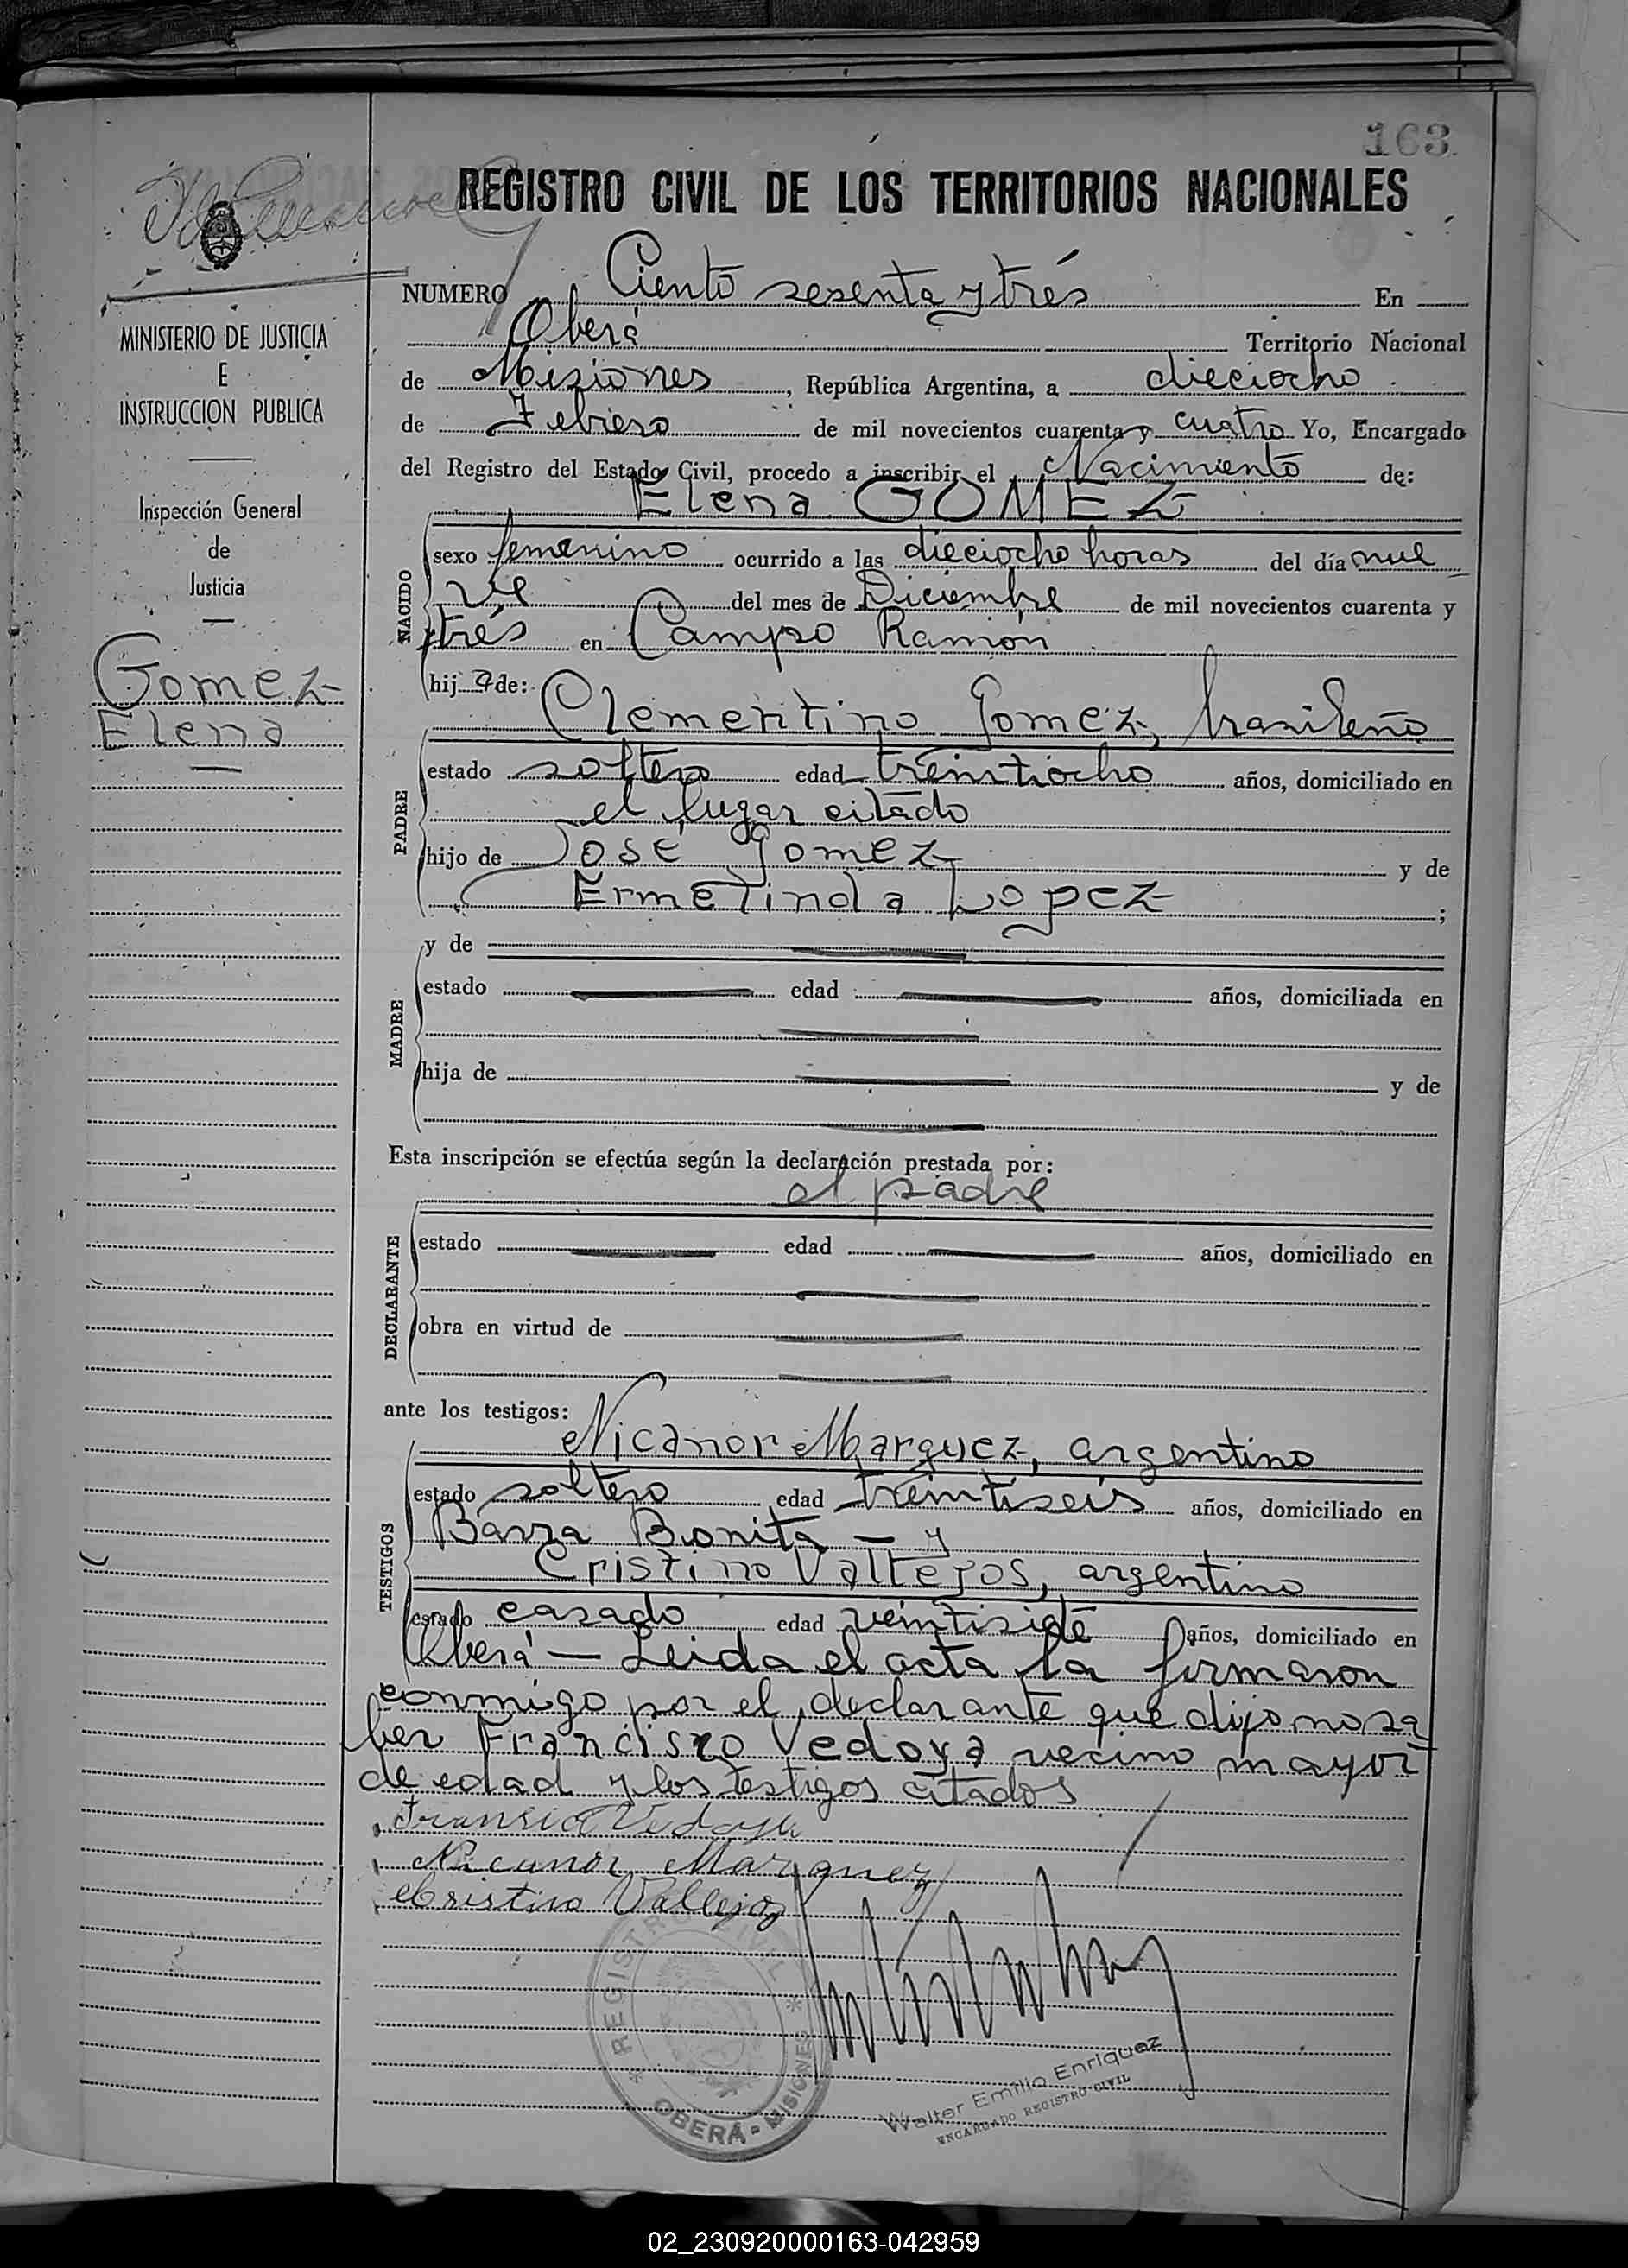 163
REGISTRO CIVIL DE LOS TERRITORIOS NACIONALES
NUMERO Ciento sesenta y trés En
Oberá Territorio Nacional
de Misiones, República Argentina, a dieciocho
de Febrero de mil novecientos cuarenta y cuatro Yo, Encargado
del Registro del Estado Civil, procedo a inscribir el Nacimiento de:
Elena GOMEZ
NACIDO
sexo femenino ocurrido a las dieciocho horas del día nue
ve del mes de Diciembre de mil novecientos cuarenta y
trés en Campo Ramón
hija de:
Clementino Gomez, brasileño
PADRE
estado soltero edad treintiocho años, domiciliado en
el lugar citado
hijo de José Gomez y de
Ermelinda Lopez ;
MADRE
y de
estado edad años, domiciliada en
hija de y de
Esta inscripción se efectúa según la declaración prestada por:
el padre
DECLARANTE
estado edad años, domiciliado en
obra en virtud de
ante los testigos:
Nicanor Marquez, argentino
TESTIGOS
estado soltero edad treintiseis años, domiciliado en
Barra Bonita — y
Cristino Vallejos, argentino
estado casado edad veintisiete años, domiciliado en
Oberá — Leida el acta la firmaron
conmigo por el declarante que dijo no sa
ber Francisco Vedoya vecino mayor
de edad y los testigos citados
Vedoya
Nicanor Marquez
Cristino Vallejos
REGISTRO CIVIL
OBERÁ - MISIONES
Walter Emilio Enriquez
ENCARGADO REGISTRO CIVIL
MINISTERIO DE JUSTICIA
E
INSTRUCCION PUBLICA
Inspección General
de
Justicia
Gomez
Elena
02_230920000163-042959